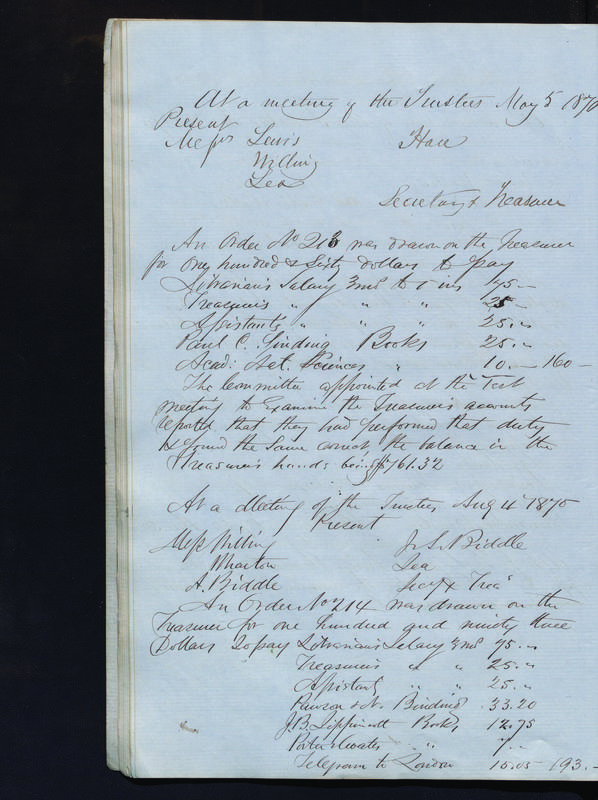 At a meeting of the Trustees May 5 1870
Present
Messrs Lewis Hare
Willing
Lea
Secretary & Treasurer
An Order No 213 was drawn on the Treasurer
for One hundred & Sixty dollars to pay
Librarian's Salary 3 mos to 1 ins 75 —
Treasurer's " " " 25 —
Assistants " " " 25 "
Paul C. Books 25 "
Acad: Nat. Sciences " 10 — 160 —
The Committee appointed at the last
meeting to Examine the Treasurers accounts
reported that they had performed that duty
& found the same correct, the balance in the
Treasurer's hands being $761.32
At a Meeting of the Trustees Aug 4 1870
Present
Messrs Willing J. S. Biddle
Wharton Lea
A. Biddle Secy & Treas
An Order No 214 was drawn on the
Treasurer for one hundred and ninety three
Dollars to pay Librarian's Salary 3 mos 75. "
Treasurer's " " 25. "
Assistants " " 25. "
Pawson & N. Binding 33.20
J. B. Lippincott Books 12.75
Porter & Coates " " 7. "
Telegram to London 15.05 193. —